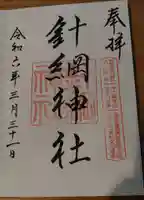 奉拝
針綱神社
令和六年三月三十一日